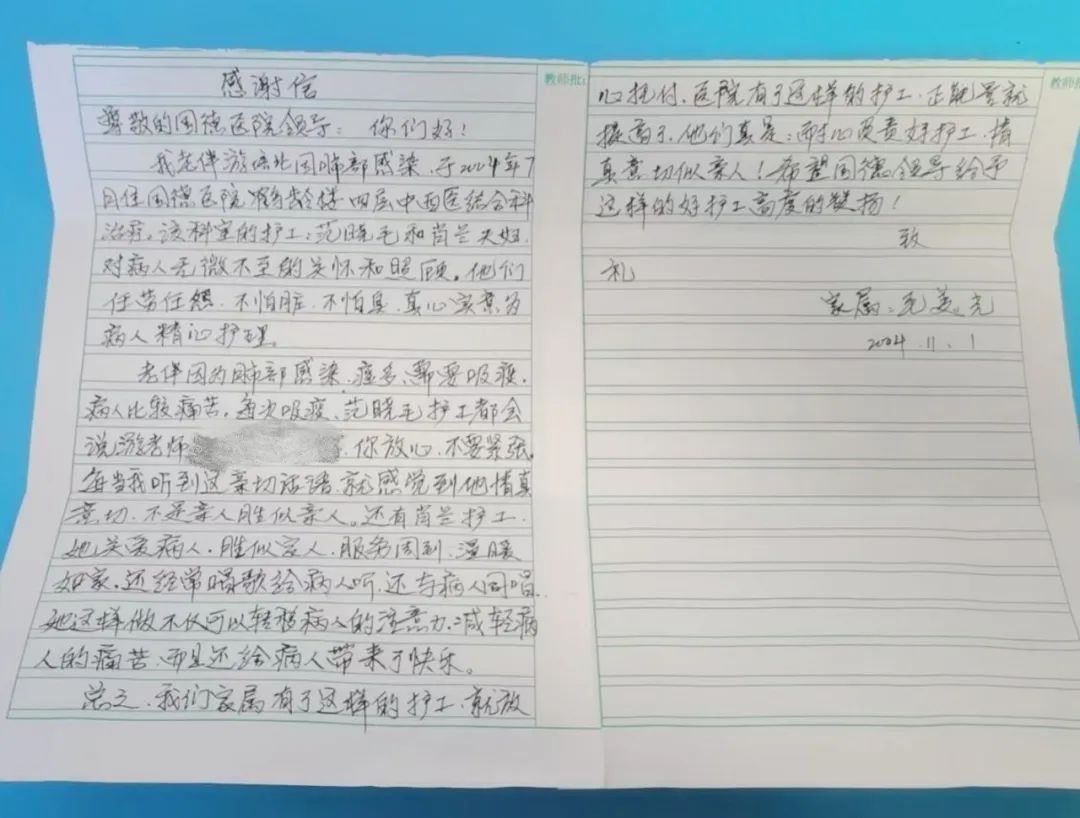 感谢信
尊敬的国德医院领导：你们好！
我老伴游语北因肺部感染，于2024年7
月住国德医院鹤龄楼四层中西医结合科
治疗。该科室的护工：范晓毛和肖兰夫妇，
对病人无微不至的关怀和照顾。他们
任劳任怨，不怕脏，不怕臭，真心实意为
病人精心护理。
老伴因为肺部感染，痰多，需要吸痰，
病人比较痛苦，每次吸痰，范晓毛护工都会
说游老师 你放心，不要紧张。
每当我听到这亲切话语，就感觉到他情真
意切，不是亲人胜似亲人。还有肖兰护工，
她关爱病人，胜似家人，服务周到，温暖
如家，还经常唱歌给病人听，还与病人同唱，
她这样做不仅可以转移病人的注意力，减轻病
人的痛苦，而且还给病人带来了快乐。
总之，我们家属有了这样的护工，就放
教师批：
心托付，医院有了这样的护工，正能量就
提高了，他们真是：耐心负责好护工，情
真意切似亲人！希望国德领导给予
这样的好护工高度的赞扬！
致
礼
家属：毛美
2024.11.1
教师批